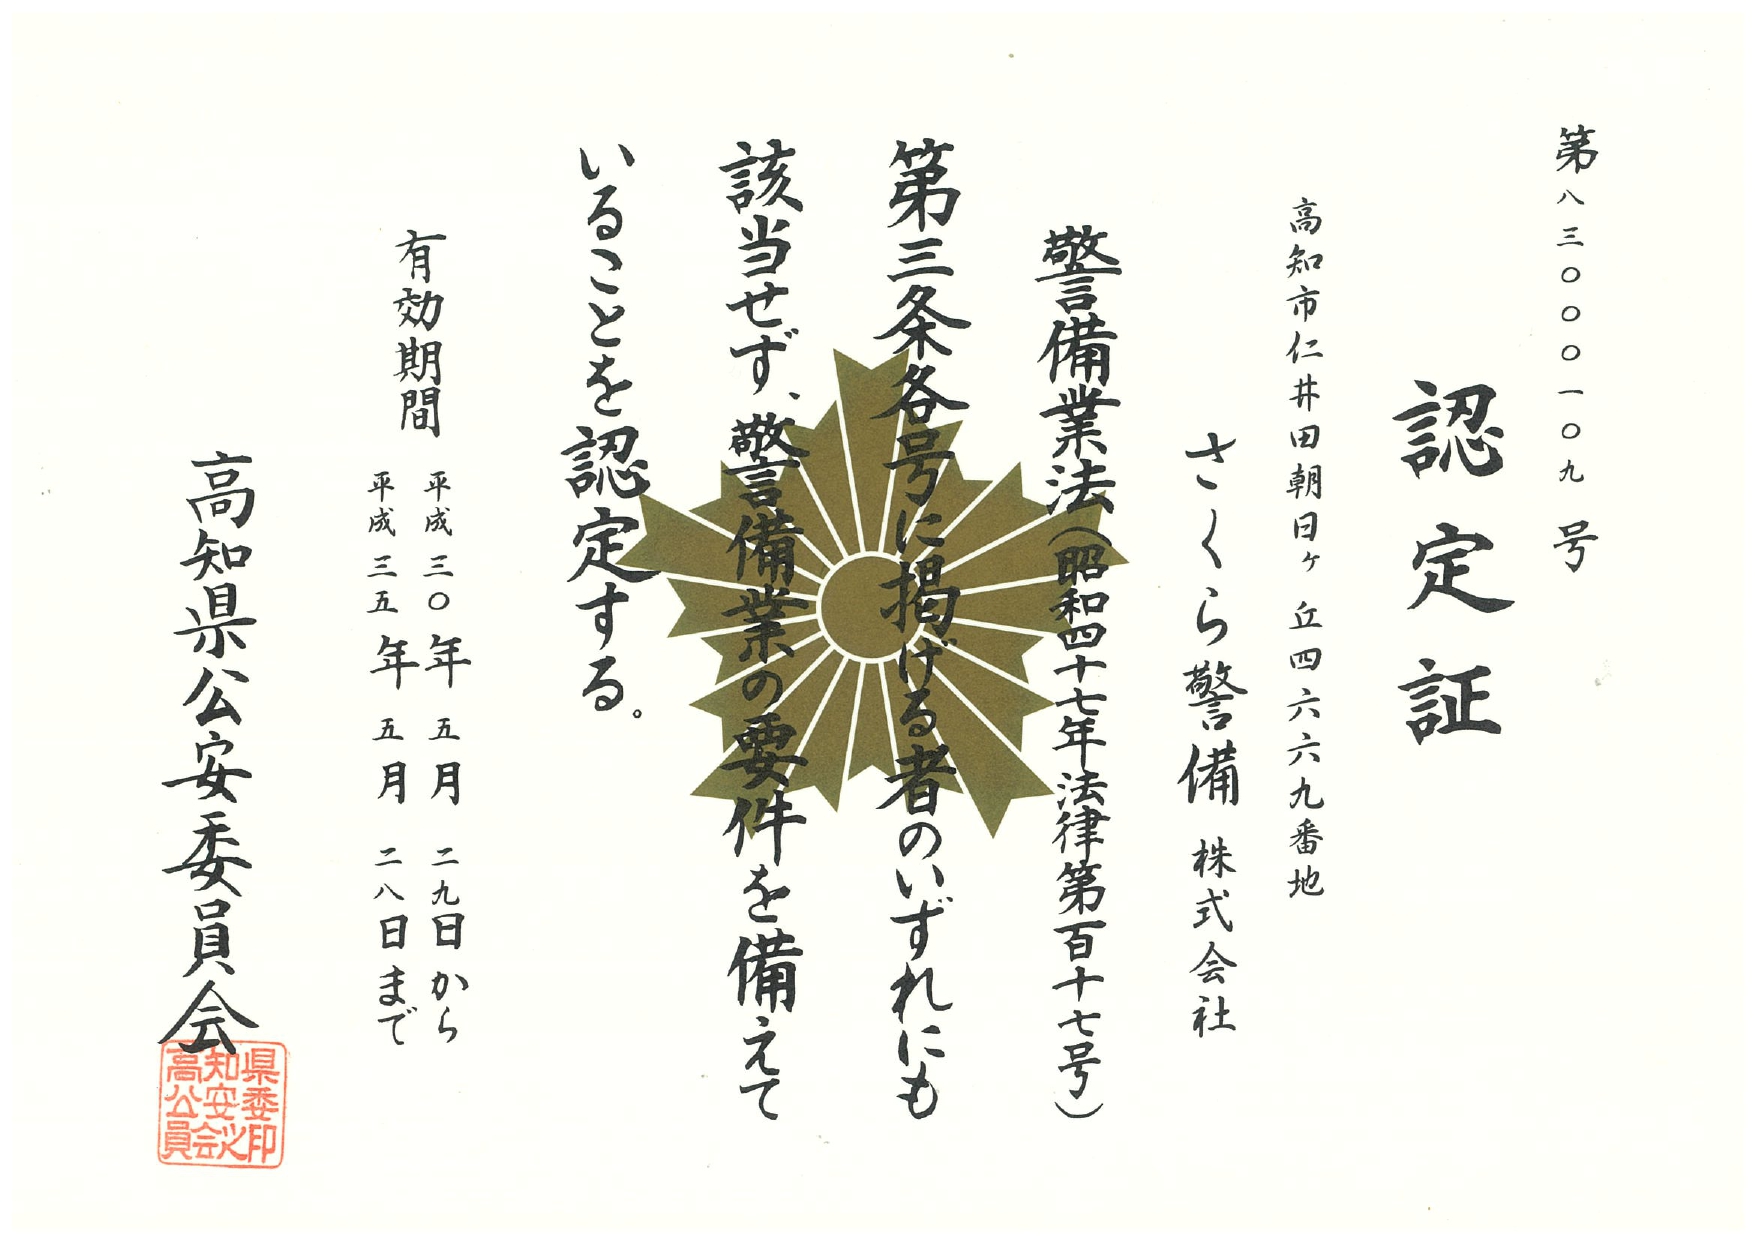 第八三〇〇〇一〇九号
認定証
高知市仁井田朝日ヶ丘四六六九番地
さくら警備株式会社
警備業法(昭和四十七年法律第百十七号)
第三条各号に掲げる者のいずれにも
該当せず、警備業の要件を備えて
いることを認定する。
有効期間
平成三〇年五月二九日から
平成三五年五月二八日まで
高知県公安委員会
高知県公安委員会之印